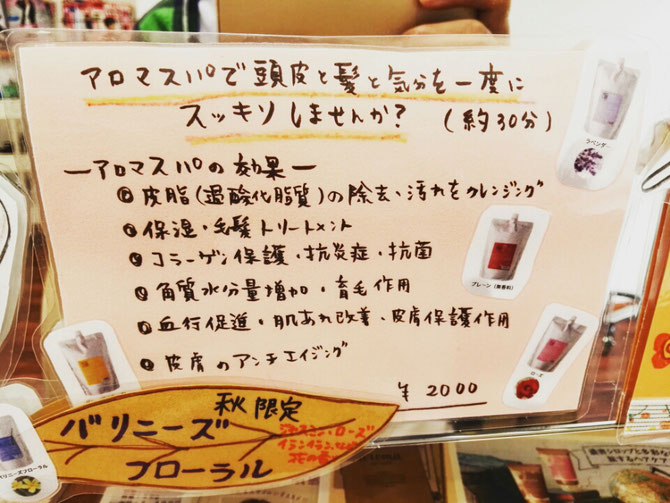 アロマスパで頭皮と髪と気分を一度に
スッキリしませんか?(約30分)
ラベンダー
ーアロマスパの効果ー
皮脂(過酸化脂質)の除去、汚れをクレンジング
保湿・毛髪トリートメント
コラーゲン保護・抗炎症・抗菌
プレーン(無香料)
角質水分量増加・育毛作用
血行促進・肌あれ改善、皮膚保護作用
皮膚のアンチエイジング
ローズ
¥2000
秋限定
バリニーズ
フローラル
ジャスミン・ローズ
イランイラン
バリニーズフローラル